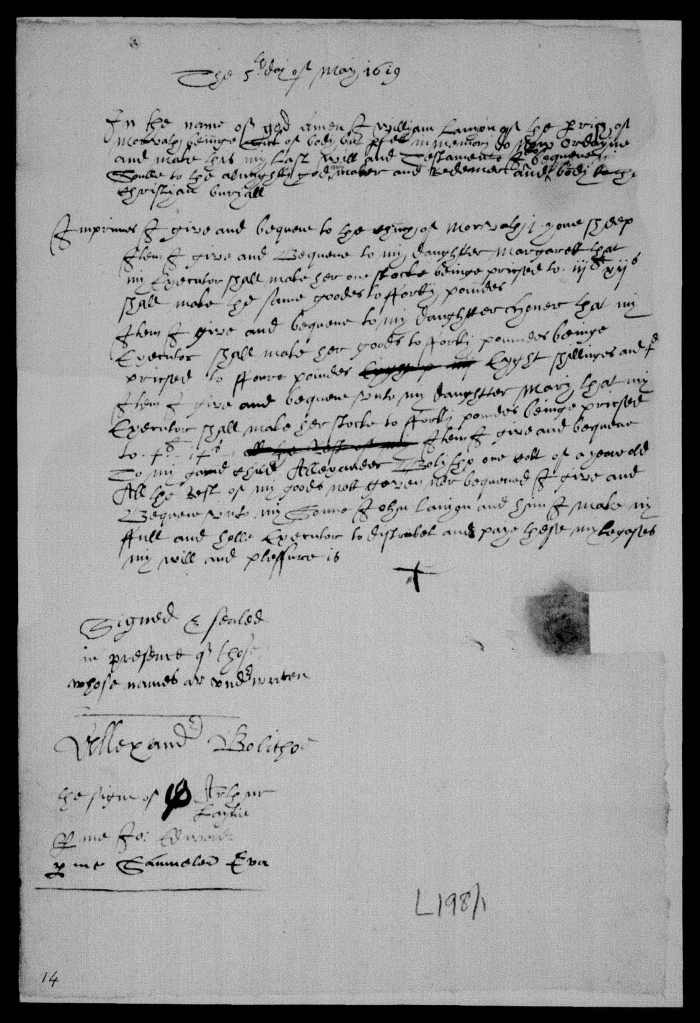 The 5th day of May 1619
In the name of god Amen I William Lanyon of the Prish of
Morvah beinge of body but pfet in memori do Ordayne
and make this my last will and Testament I bequeve
Soulle to the almighti god maker and Redemer and bodi to
Christian buriall
Inprimes I give and bequeve to the of Morvah j yone shep
Item I give and Bequeve to my daughtter Margarett that
my Executor shall make her one stocke beinge prised to
shall make the same goodes to fforti poundes
Item I give and bequeve to my daughtter that my
Executor shall make her goods to fforti poundes beinge
prised to ffowre poundes Eyght shillinges and
Item I give and bequeve unto my daughtter Mary that my
Executor shall make her stocke to fforti poundes beinge prised
to Item I give and bequeve
To my child Allexander Bolithо one colt of a yeare old
All the Rest of my goods nott geven ner bequeved I give and
Bequeve unto my Sonne John Lanyon and him I make my
ffull and holle Executor to distrobet and paye these my legases
my will and plessure is
Signed & sealed
in presence of those
whose names ar undrwriten
Allexandr Bolithoe
the signe of Arthur
p me Jo: Edwards
p me Sammeler Eva
L198/1
14